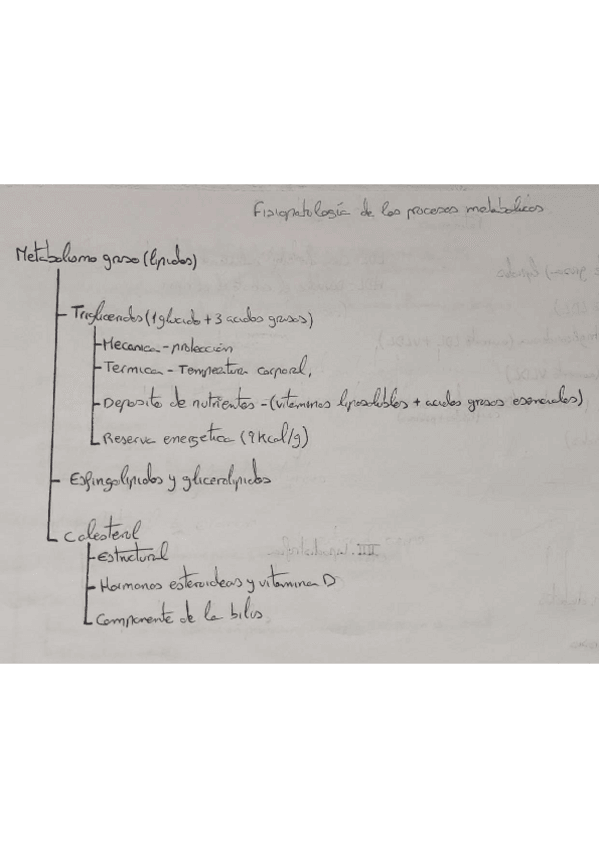 Fisiopatología de los procesos metabolicos
Metabolismo graso (lipidos)
Trigliceridos (1 glucido + 3 acidos grasos)
Mecanica - protección
Termica - Temperatura corporal,
Deposito de nutrientes - (vitaminas liposolubles + acidos grasos esenciales)
Reserva energetica (9 Kcal/g)
Esfingolipidos y glicerolipidos
Colesterol
Estructural
Hormonas esteroideas y vitamina D
Componente de la bilis